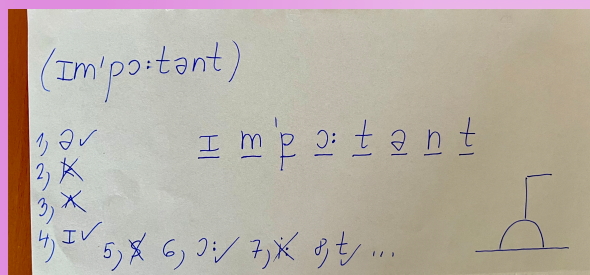 (ɪm'pɔ:tənt)
1) ə ✓
ɪ m 'p ɔ: t ə n t
2) k
3) ʌ
4) ɪ ✓ 5) 6) ɔ: ✓ 7) 8) t ✓ ...